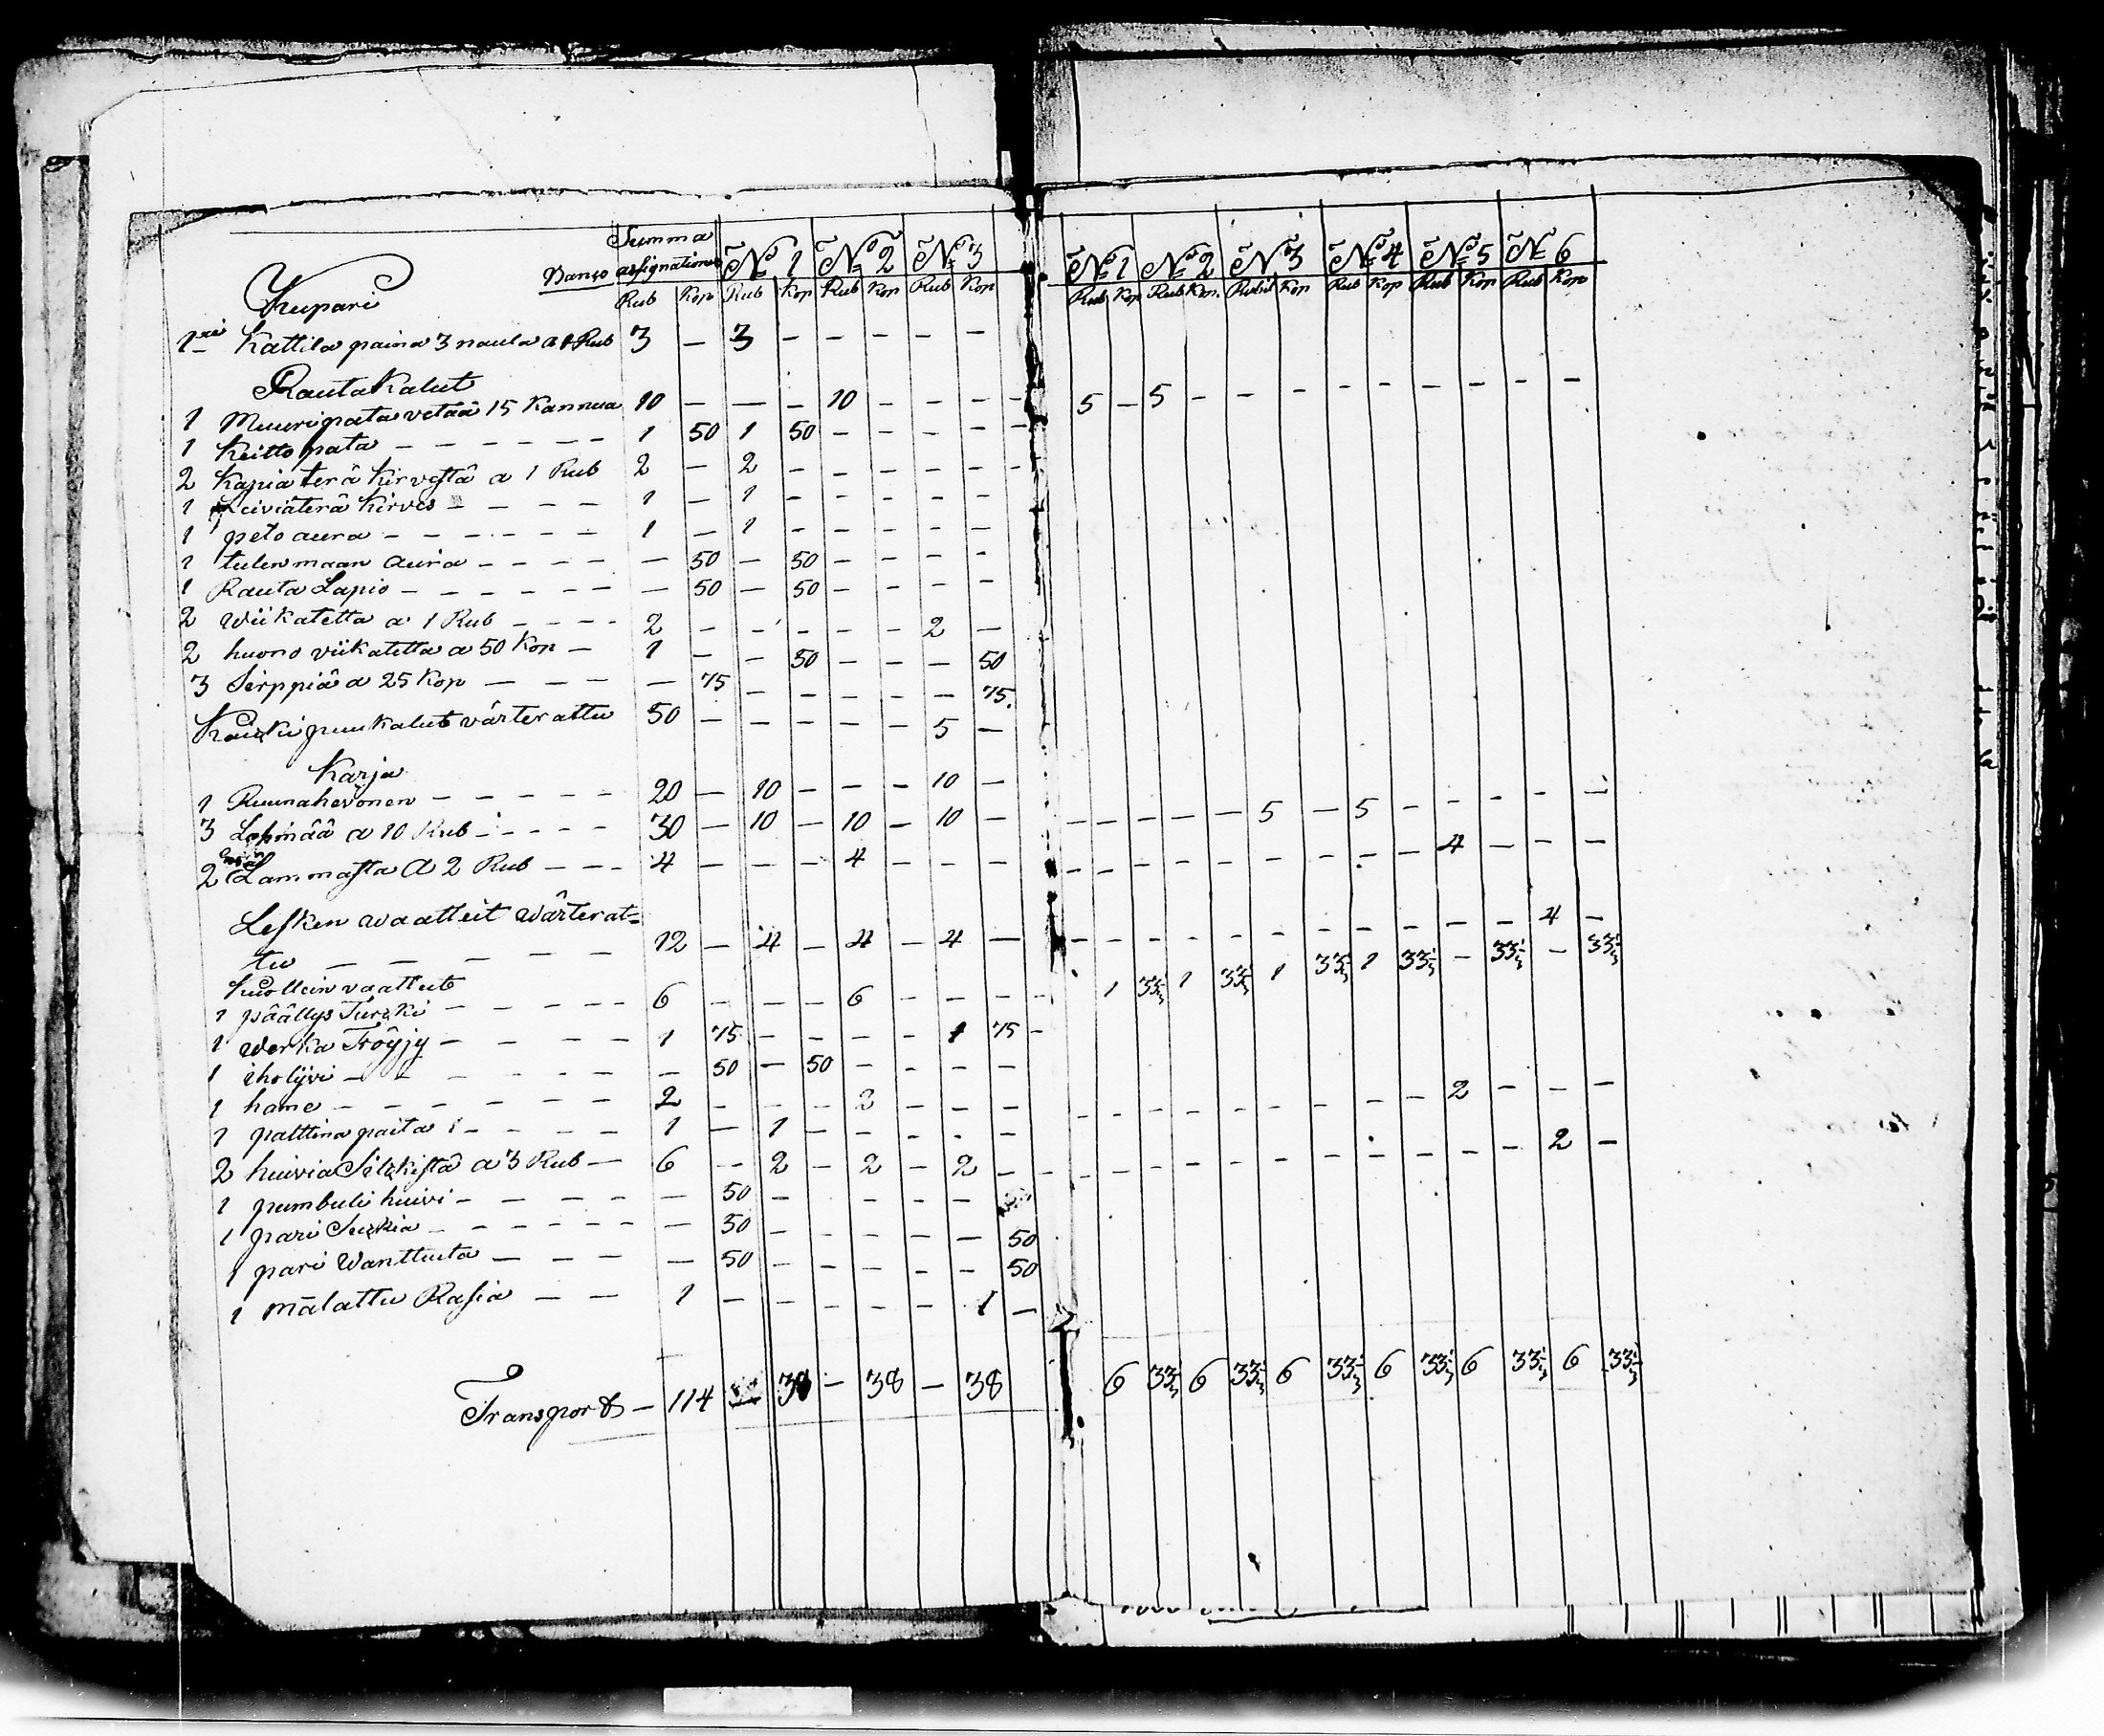 Summa
Banco assignationes № 1 № 2 № 3 № 1 № 2 № 3 № 4 № 5 № 6
Rub Kop Rub Kop Rub Kop Rub Kop Rub Kop Rub Kop. Rubil Kop Rub Kop Rub Kop Rub Kop
Kupari
1 Kattila paina 3 naula a 1 Rub 3 — 3 — — — — —
Rauta Kalut
1 Muuripata vetää 15 Kannua 10 — — — 10 — — — 5 — 5 — — — — — — — — —
1 Keitto pata — — — — — — 1 50 1 50 — — — —
2 Kapia terä Kirvestä a 1 Rub 2 — 2 — — — — —
1 Leiviäterä Kirves — — — — 1 — 1 — — — — —
1 peto aura — — — — — — 1 — 1 — — — — —
1 tulen maan aura — — — — — 50 — 50 — — — —
1 Rauta Lapio — — — — — — — 50 — 50 — — — —
2 Wiikatetta a 1 Rub — — — — 2 — — — — — 2 —
2 huono viikatetta a 50 Kop — 1 — — 50 — — — 50
3 Sirppiä a 25 Kop — — — — — 75 — — — — — 75.
Kaicki puukalut värterattu 50 — — — — — 5 —
Karja
1 Ruunahevonen — — — — — 20 — 10 — — — 10 —
3 Lehmää a 10 Rub — — — — 30 — 10 — 10 — 10 — — — — — 5 — 5 — — — — —
2 Lammasta A 2 Rub — — — 4 — — — 4 — — — — — — — — — — — 4 — — —
Lesken waatteit Wärterat=
tu — — — — — 12 — 4 — 4 — 4 — — — — — — — — — — — 4 —
Kuollein vaatteit
1 päällys Turcki — — — — — 6 — — — 6 — — — 1 33⅓ 1 33⅓ 1 33⅓ 1 33⅓ — 33⅓ — 33⅓
1 Werka Tröyjy — — — — — 1 75 — — — — 1 75 —
1 iholijvi — — — — — — — 50 — 50 — — — —
1 hame — — — — — — 2 — — — 2 — — — — — — — — — — — 2 — — —
1 palttina paita — — — — 1 — 1 — — — — —
2 huivia Silckistä a 3 Rub — 6 — 2 — 2 — 2 — — — — — — — — — — — 2 —
1 pumbuli huivi — — — — — 50 — — — — —
1 pari Suckia — — — — — — — 50 — — — — — 50
1 pari Wanttuita — — — — — 50 — — — — — 50
1 mālattu Rasia — — 1 — — — — — 1 —
Transport — 114 38 — 38 — 38 6 33⅓ 6 33⅓ 6 33⅓ 6 33⅓ 6 33⅓ 6 33⅓